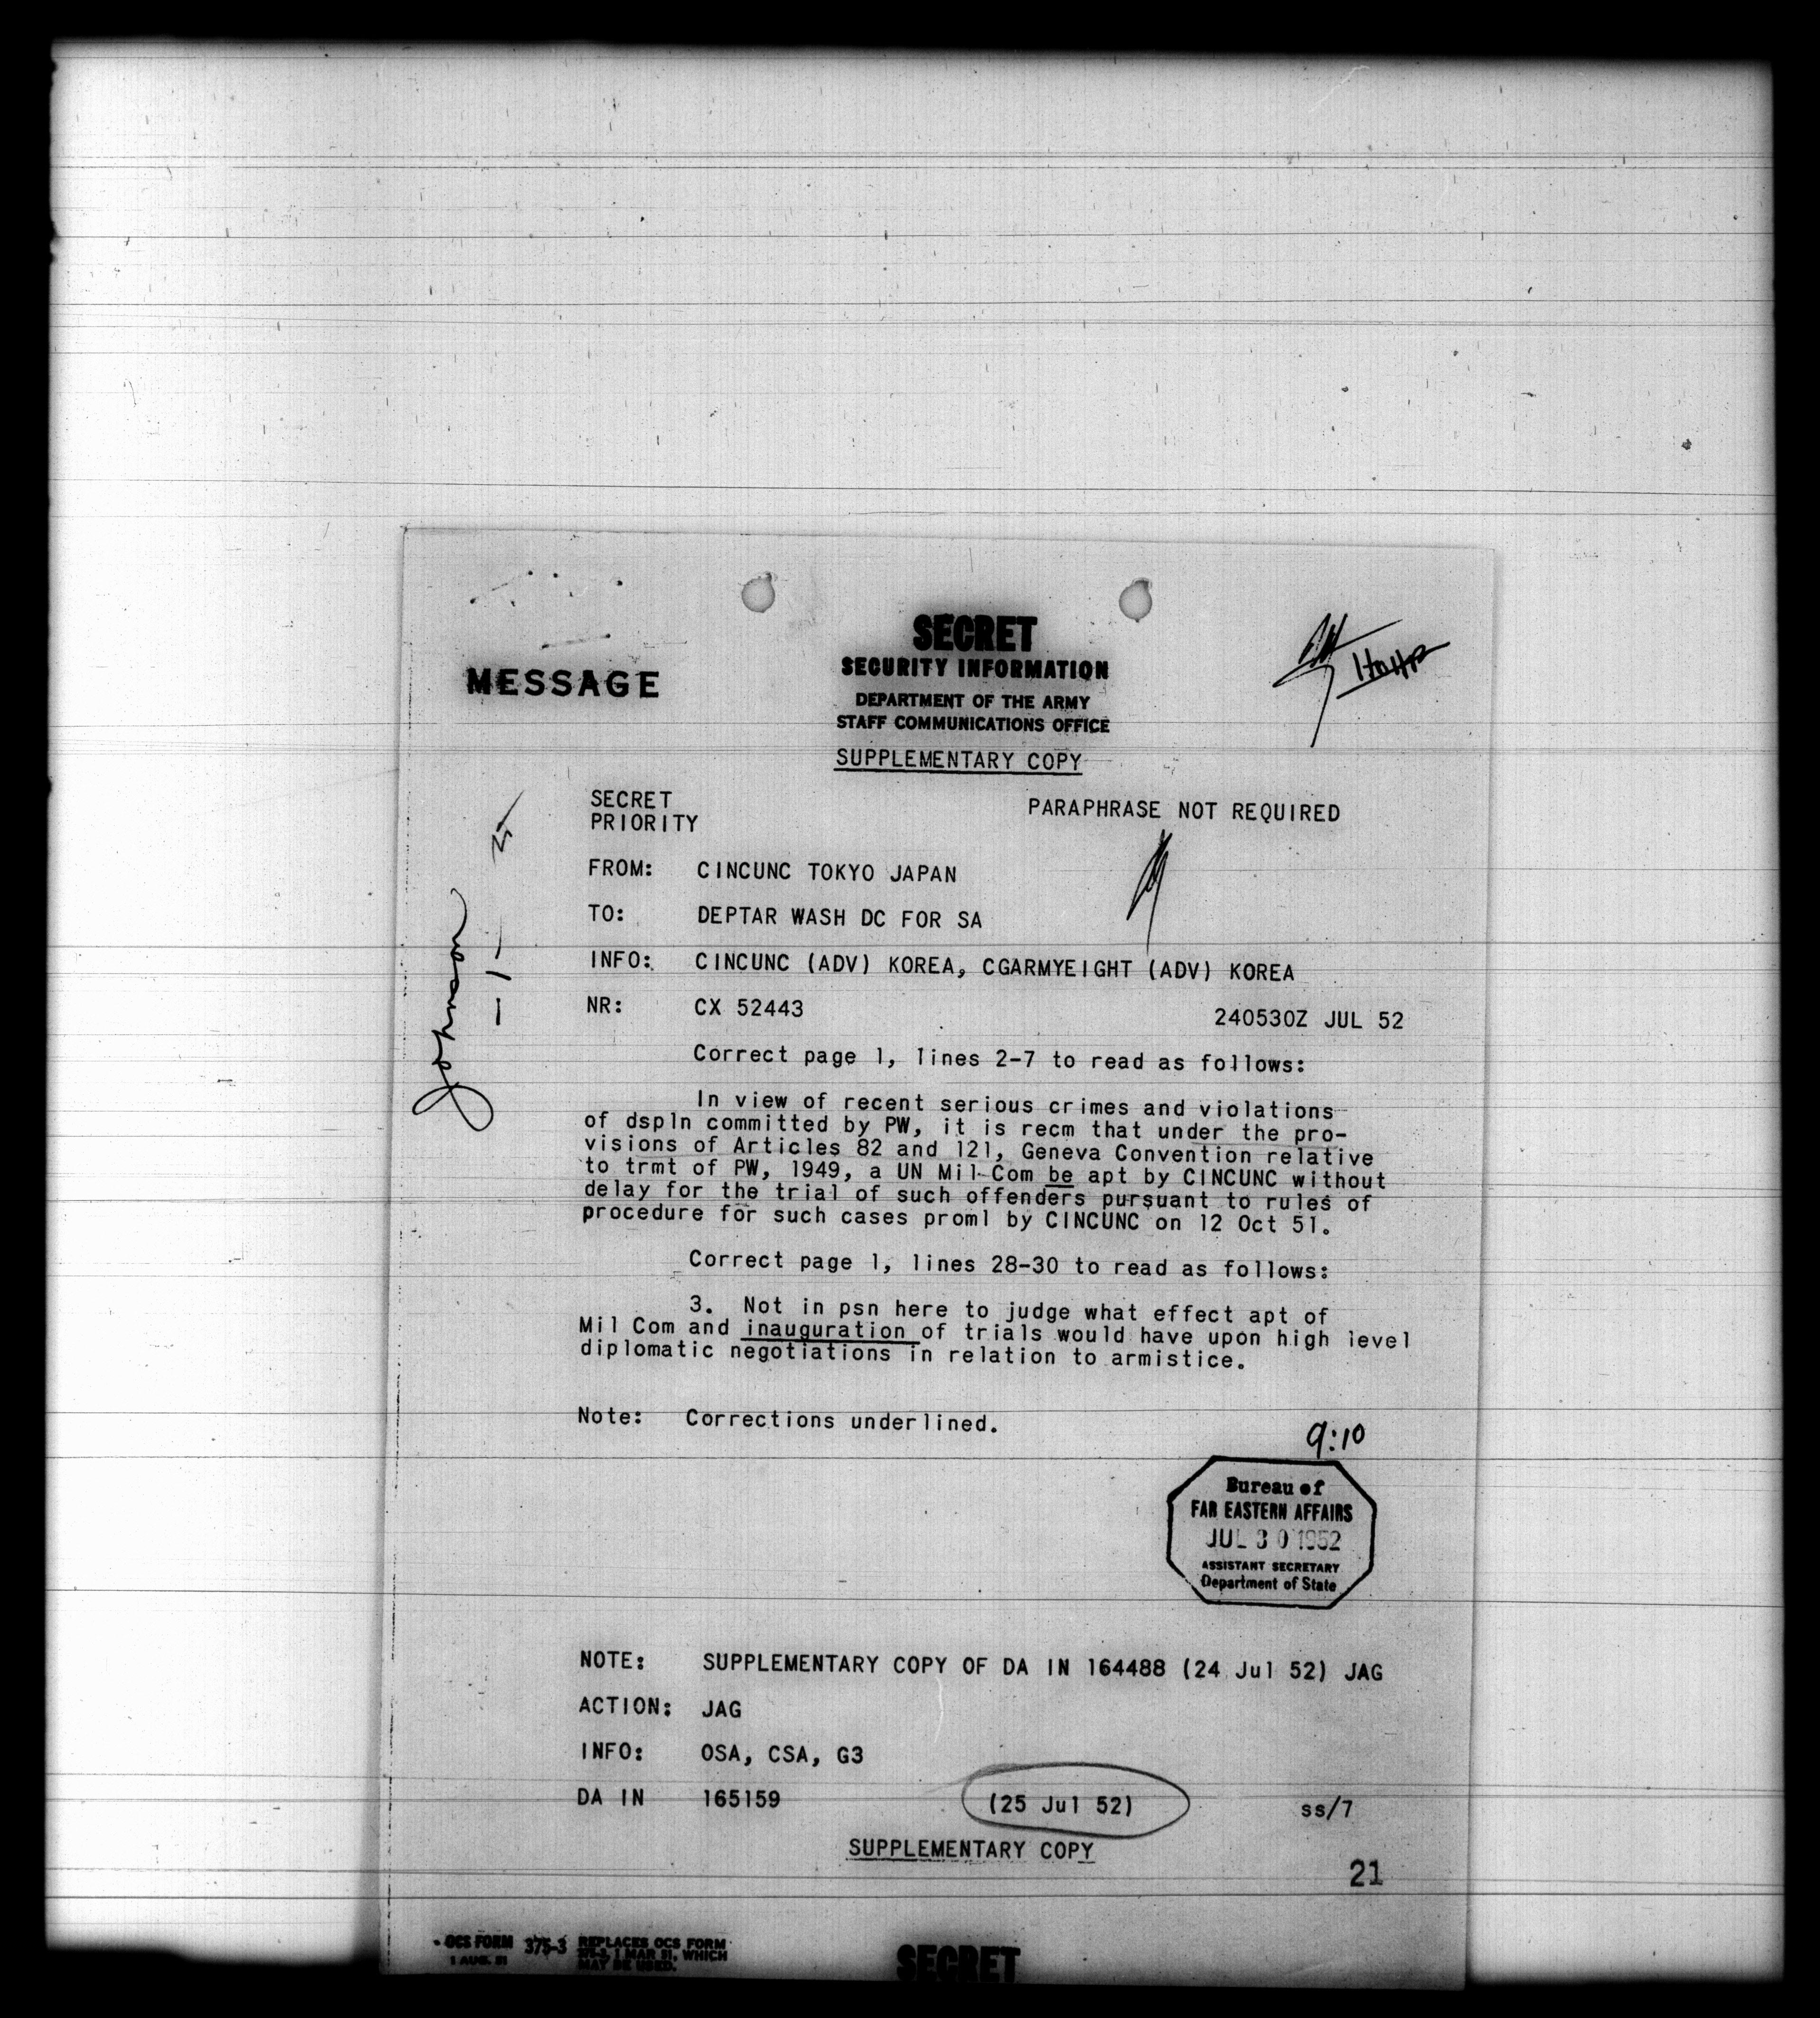 SECRET
SECURITY INFORMATION
MESSAGE
DEPARTMENT OF THE ARMY
STAFF COMMUNICATIONS OFFICE
SUPPLEMENTARY COPY
SECRET
PRIORITY
PARAPHRASE NOT REQUIRED
FROM: CINCUNC TOKYO JAPAN
TO: DEPTAR WASH DC FOR SA
INFO: CINCUNC (ADV) KOREA, CGARMYEIGHT (ADV) KOREA
NR: CX 52443 240530Z JUL 52
Johnson
- 1 -
Correct page 1, lines 2-7 to read as follows:
In view of recent serious crimes and violations
of dspln committed by PW, it is recm that under the pro-
visions of Articles 82 and 121, Geneva Convention relative
to trmt of PW, 1949, a UN Mil Com be apt by CINCUNC without
delay for the trial of such offenders pursuant to rules of
procedure for such cases proml by CINCUNC on 12 Oct 51.
Correct page 1, lines 28-30 to read as follows:
3. Not in psn here to judge what effect apt of
Mil Com and inauguration of trials would have upon high level
diplomatic negotiations in relation to armistice.
Note: Corrections underlined.
9:10
Bureau of
FAR EASTERN AFFAIRS
JUL 30 1952
ASSISTANT SECRETARY
Department of State
NOTE: SUPPLEMENTARY COPY OF DA IN 164488 (24 Jul 52) JAG
ACTION: JAG
INFO: OSA, CSA, G3
DA IN 165159 (25 Jul 52) ss/7
SUPPLEMENTARY COPY
21
OCS FORM 375-3 REPLACES OCS FORM
1 AUG. 51 375-3, 1 MAR 51, WHICH
MAY BE USED.
SECRET